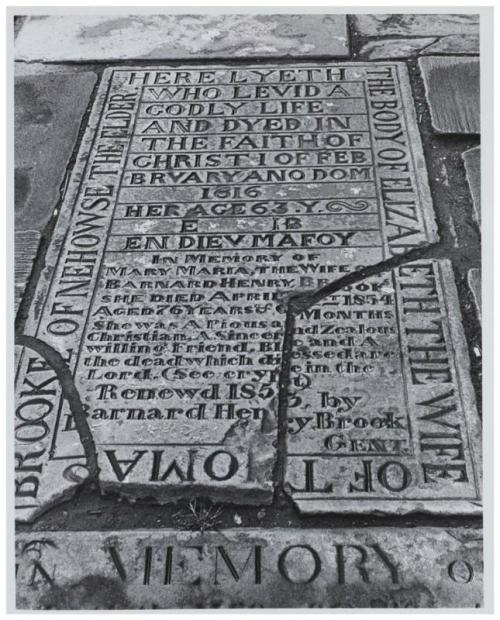 HERE LYETH
WHO LEVID A
GODLY LIFE
AND DYED IN
THE FAITH OF
CHRIST · I OF FEB
BRVARY ANO DOM
1616
HER AGE 63. Y.
E IB
EN DIEV MA FOY
THE BODY OF ELIZA
BETH THE WIFE
OF T
OMA
BROOKE OF NEHOWSE THE ELDER.
IN MEMORY OF
MARY MARIA, THE WIFE
BARNARD HENRY BROOK
SHE DIED APRIL 1854
AGED 76 YEARS & 6 MONTHS
She was A Pious and Zealous
Christian, A Sincere and A
willing Friend, Blessed are
the dead which die in the
Lord. (See
Renewd 1855, by
Barnard Henry Brook
GENT.
IN MEMORY O